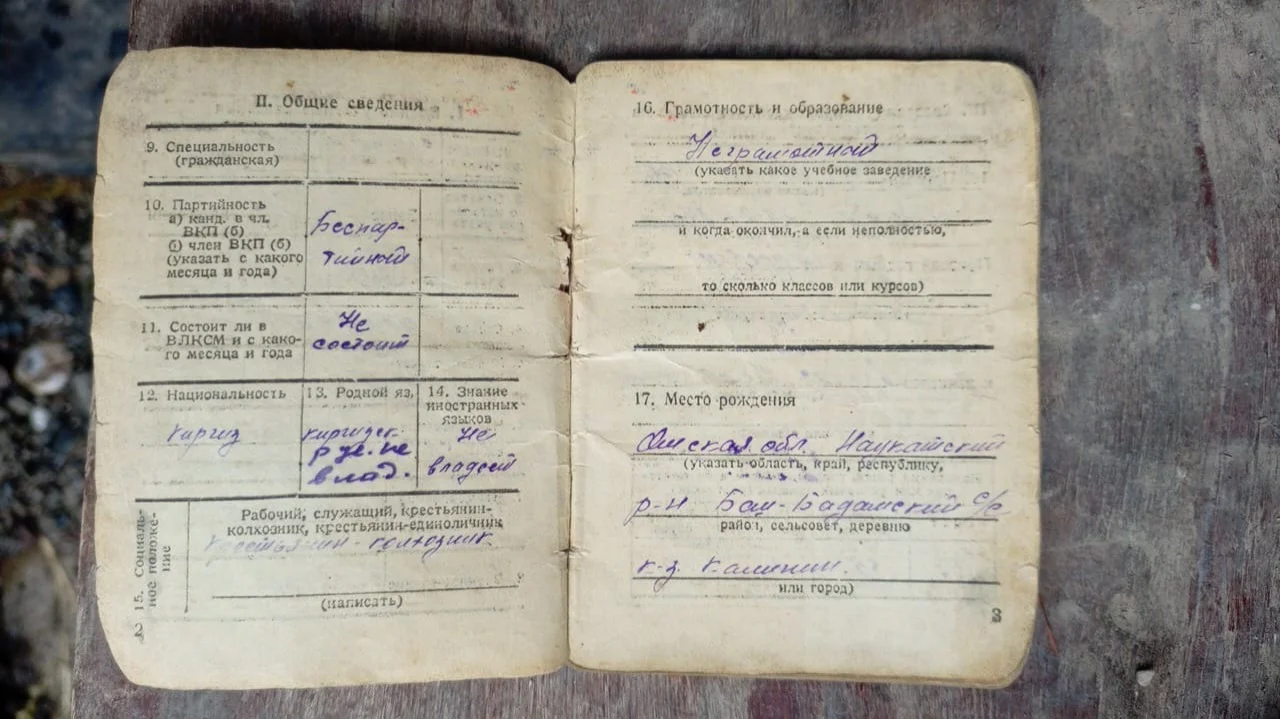 II. Общие сведения
9. Специальность
(гражданская)
10. Партийность
а) канд. в чл.
ВКП (б)
б) член ВКП (б)
(указать с какого
месяца и года)
Беспар-
тийный
11. Состоит ли в
ВЛКСМ и с како-
го месяца и года
Не
состоит
12. Национальность
киргиз
13. Родной яз.
киргизск.
рус. не
влад.
14. Знание
иностранных
языков
Не
владеет
15. Социаль-
ное положе-
ние
Рабочий, служащий, крестьянин-
колхозник, крестьянин-единоличник
крестьянин-колхозник
(написать)
2
16. Грамотность и образование
Неграмотный
(указать какое учебное заведение
и когда окончил, а если неполностью,
то сколько классов или курсов)
17. Место рождения
Ошская обл. Наукатский
(указать область, край, республику,
р-н Баш-Бадамский с/с
район, сельсовет, деревню
к-з Калинин.
или город)
3